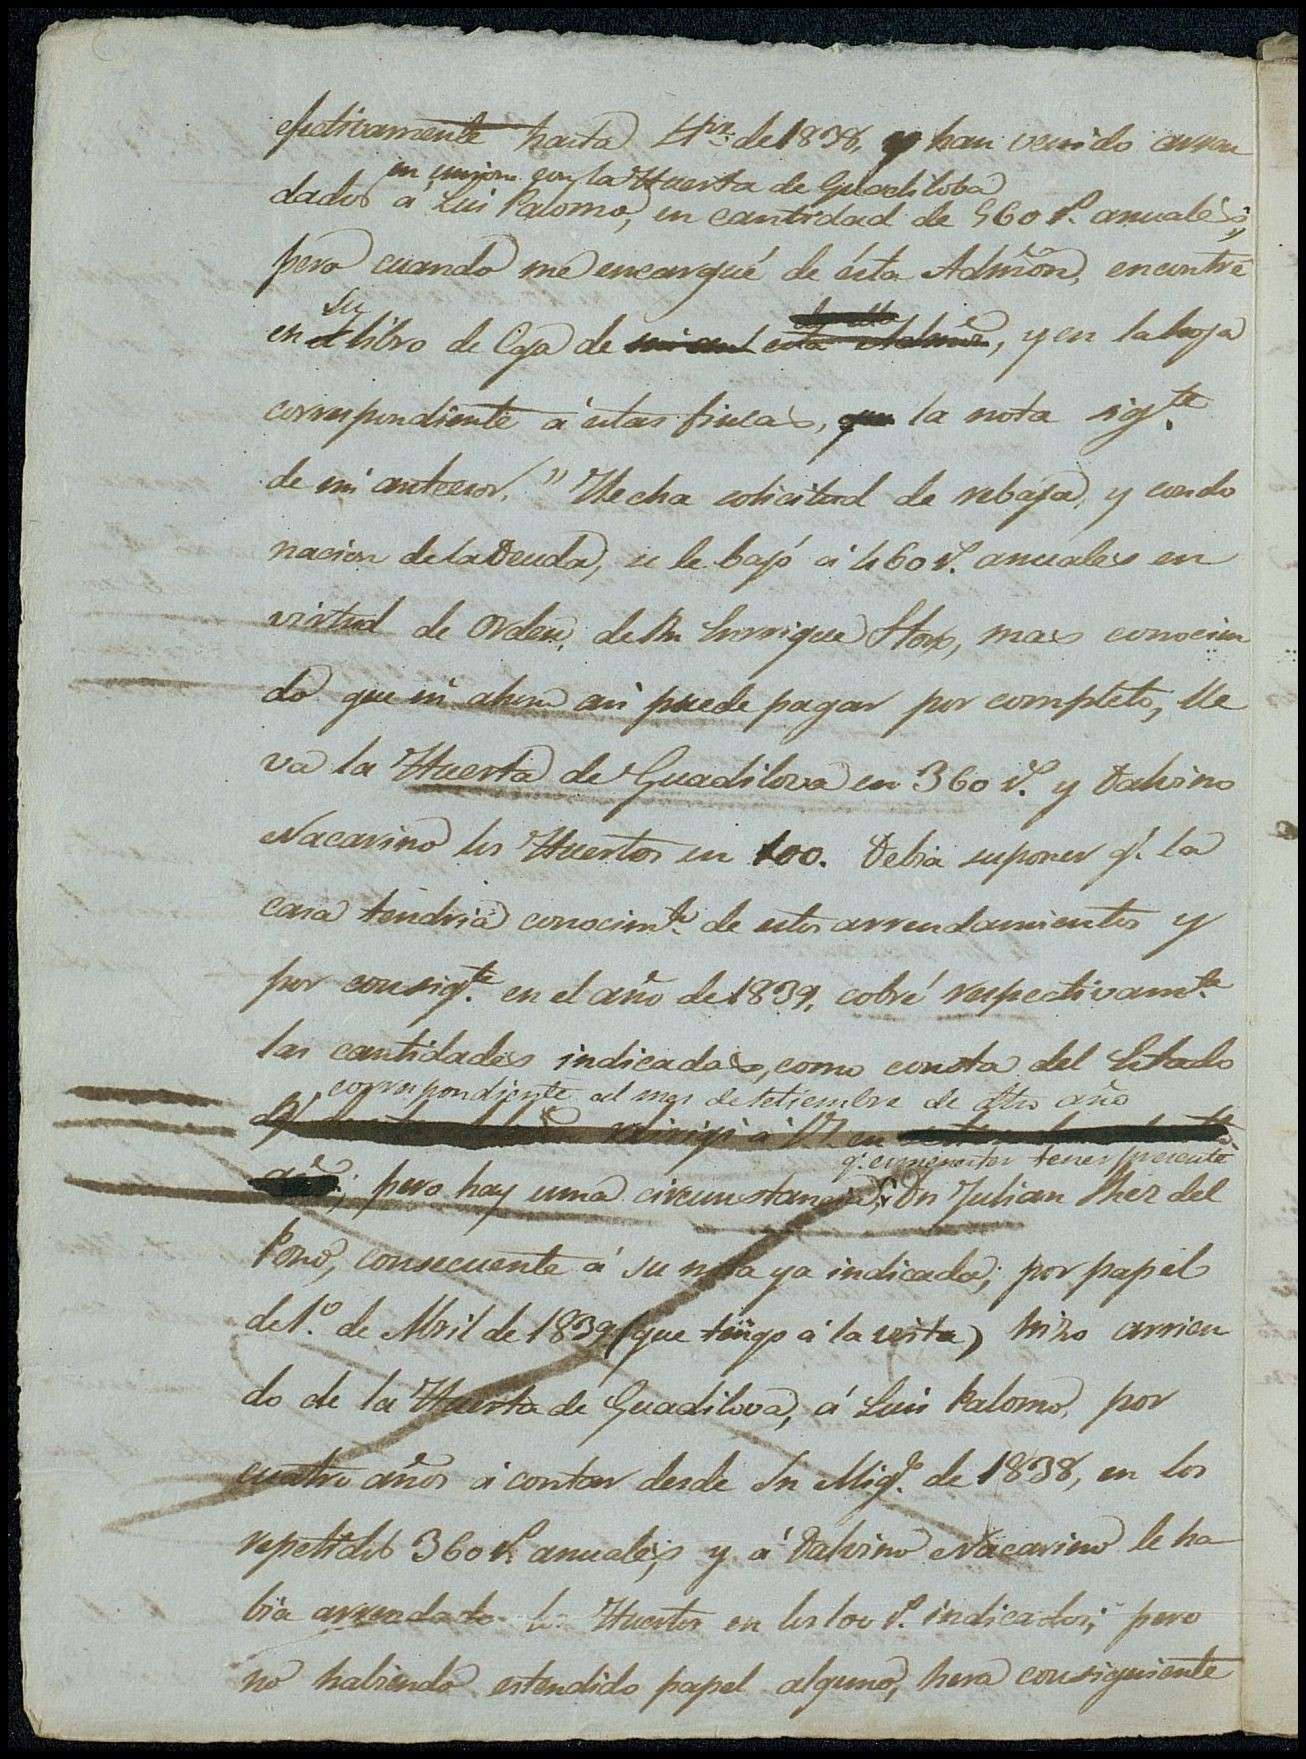 efectivamente hasta fin de 1838, y han venido arren
en union con la Huerta de Guadiloba
dados á Luis Palomo, en cantidad de 560 rs. anuales;
pero cuando me encargué de ésta Admon, encontré
su
en libro de Caja de esta Admon, y en la hoja
correspondiente á estas fincas, la nota sigte.
de mi antecesor. "Hecha solicitud de rebaja, y condo
nacion de la Deuda, se le bajó á 460 rs. anuales en
virtud de Orden, de Dn Enrrique Stor, mas conocien
do que ni ahun asi puede pagar por completo, lle
va la Huerta de Guadilova en 360 rs. y Dalvino
Nacarino los Huertos en 100. Debia suponer q. la
casa tendria conocimto. de estos arrendamientos y
por consigte. en el año de 1839, cobré respectivamte.
las cantidades indicadas, como consta del Estado
correspondiente al mes de Setiembre de dho año
q. dirigi á V. en
q. es menester tener presente
; pero hay una circunstancia; Dn Julian Shez del
Pozo, consecuente á su nota ya indicada; por papel
de 1.º de Abril de 1839 (que tengo á la vista) hizo arrien
do de la Huerta de Guadilova, á Luis Palomo, por
cuatro años á contar desde Sn Migl. de 1838, en los
repetidos 360 rs. anuales, y á Dalvino Nacarino le ha
bia arrendado los Huertos en los 100 rs. indicados; pero
no habiendo estendido papel alguno, hera consiguiente